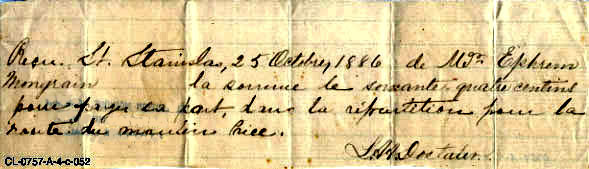 Recu. St. Stanislas, 25 Octobre, 1886 de Mdr Ephrem
Mongrain la somme de soixante-quatre centins
pour payer sa part, dans la répartition pour la
route du moulin Price.
Dostaler.
CL-0757-A-4-c-052